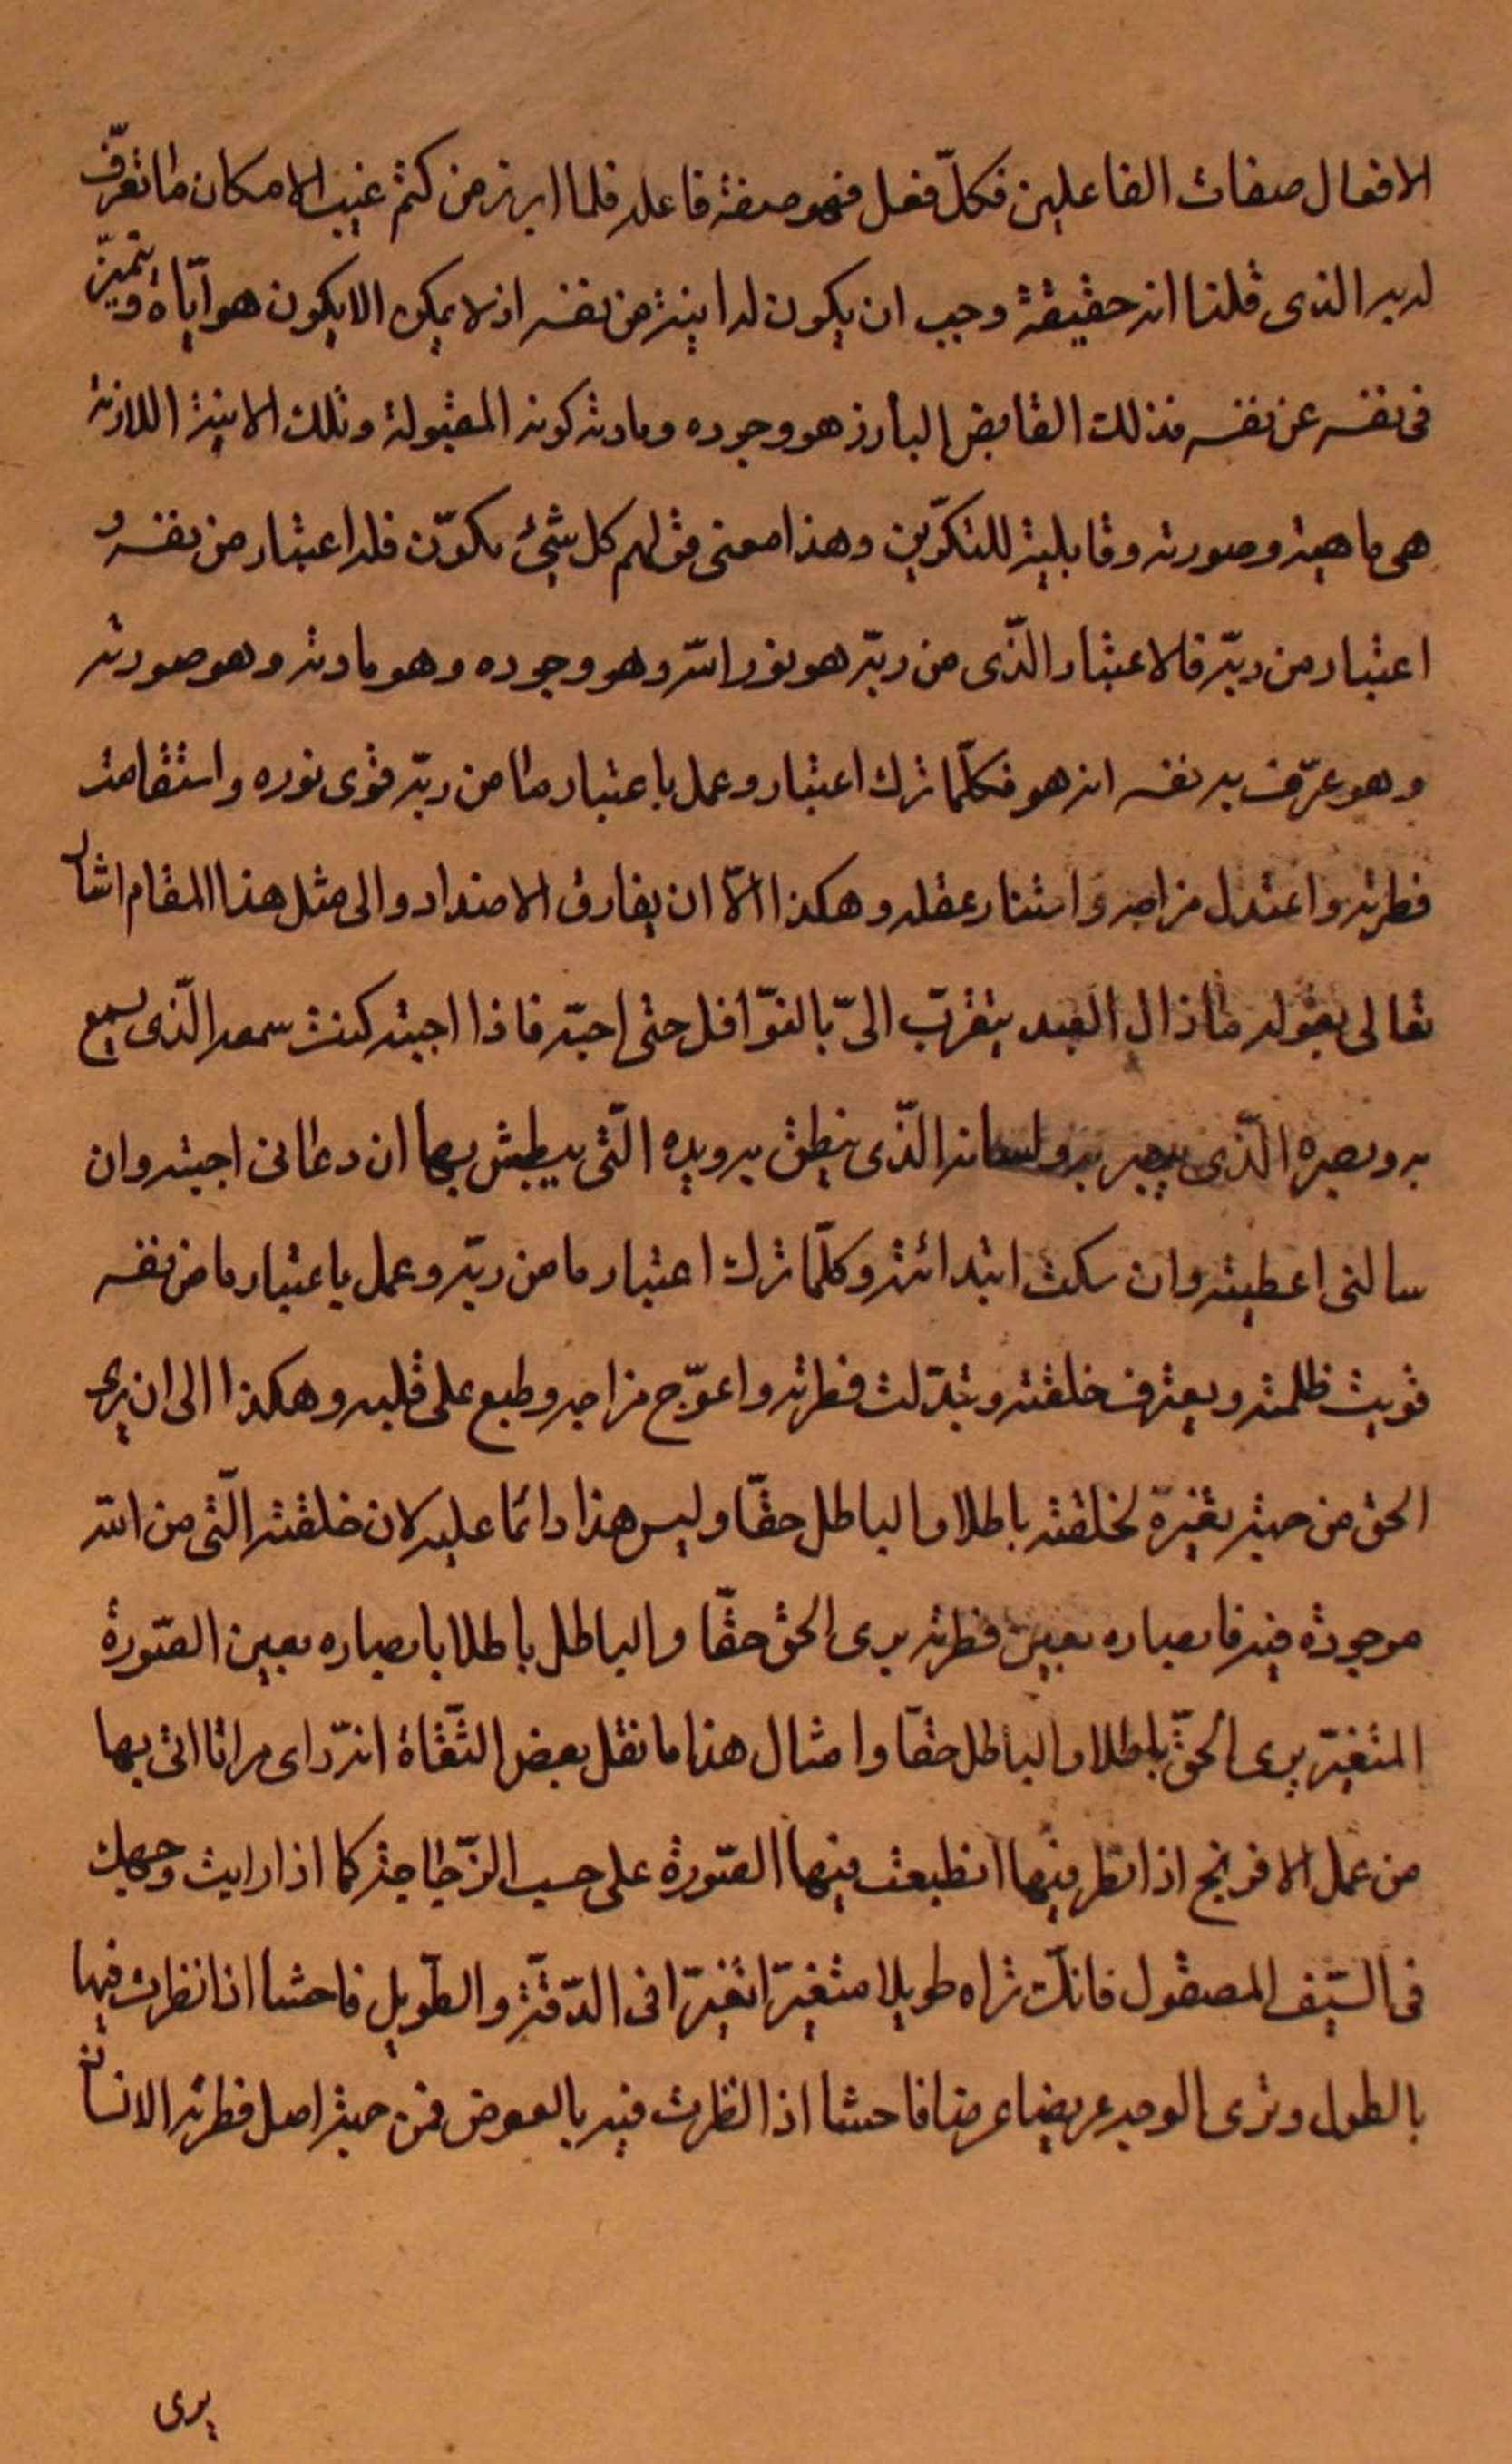 الافعال صفات الفاعلين فكلّ فعل فهو صفة فاعله فلما ابرز من كتم غيب الامكان ما تعرّف
له به الذى قلنا انه حقيقة وجب ان يكون له انية من نفسه اذ لا يمكن الا يكون هو ايّاه و يتميّز
فى نفسه عن نفسه فذلك الفايض البارز هو وجوده ومادته كونه المقبولة وتلك الانية اللازمة
هى ماهيته وصورته وقابلية للتكوّين وهذا معنى قولهم كل شئ مكوّن فله اعتبار من نفسه و
اعتبار من ربّه فالاعتبار الذّى من ربّه هو نور الله وهو وجوده وهو مادته وهو صورته
وهو عرّف به نفسه انه هو فكلّما ترك اعتبار وعمل باعتبار ما من ربّه قوى نوره واستقامت
فطرته واعتدل مزاجه واستنار عقله وهكذا الاّ ان يفارق الاضداد والى مثل هذا المقام اشار
تعالى بقوله ما ذال العبد يتقرّب الىّ بالنوّافل حتى احبّه فاذا احبته كنت سمعه الذّى يسمع
به وبصره الذّى يبصر به ولسانه الذّى ينطق به ويده الّتى يبطش بها ان دعانى اجبته وان
سالنى اعطيته وان سكت ابتدائته وكلّما ترك اعتبار ما من ربّه وعمل باعتبار ما من نفسه
قويت ظلمته ويعترف خلقته وتبدّلت فطرته واعوّج مزاجه وطبع على قلبه وهكذا الى ان يرى
الحق من حيث تغيّرة لخلقته باطلا والباطل حقّا وليس هذا دائما عليه لان خلقته الّتى من الله
موجودة فيه فابصاره بعين فطرته يرى الحق حقّا والباطل باطلا بابصاره بعين الصّورة
المتغيّر يرى الحقّ باطلا والباطل حقّا وامثال هذا ما نقل بعض الثّقاة انه رّاى مراتا اتى بها
من عمل الافرنج اذا نظر فيها انطبعت فيها الصّورة على حسب الزّجاجة كما اذا رايت وجهك
فى السّيف المصقول فانك تراه طويلا متغيّرا تغيّرا فى الدّقّة والطّويل فاحشا اذا نظرت فيها
بالطول وترى الوجه عريضا عرضا فاحشا اذا نظرت فيه بالعرض فمن حيث اصل فطرته الانسان
يرى